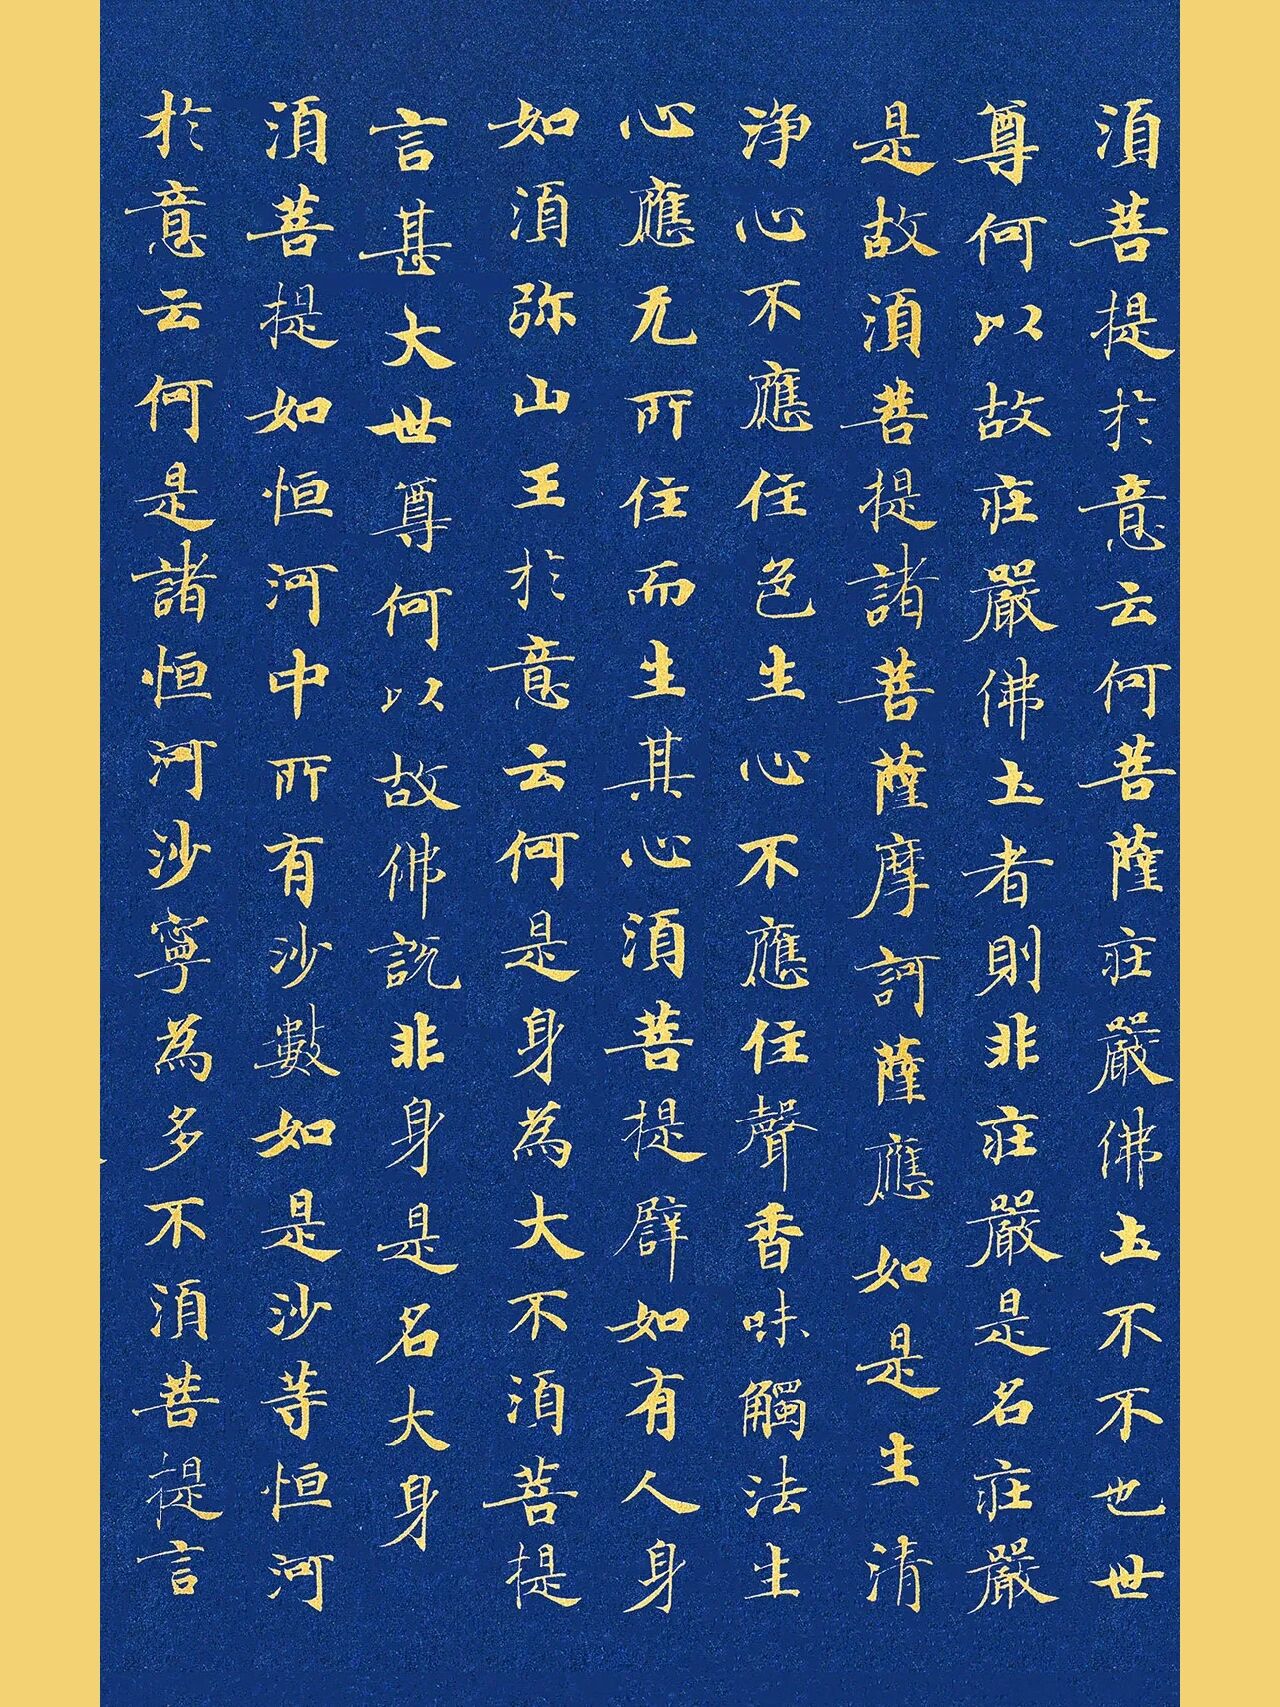 須菩提於意云何菩薩莊嚴佛土不不也世
尊何以故莊嚴佛土者則非莊嚴是名莊嚴
是故須菩提諸菩薩摩訶薩應如是生清
净心不應住色生心不應住聲香味觸法生
心應无所住而生其心須菩提辟如有人身
如須弥山王於意云何是身為大不須菩提
言甚大世尊何以故佛說非身是名大身
須菩提如恒河中所有沙數如是沙等恒河
於意云何是諸恒河沙寧為多不須菩提言